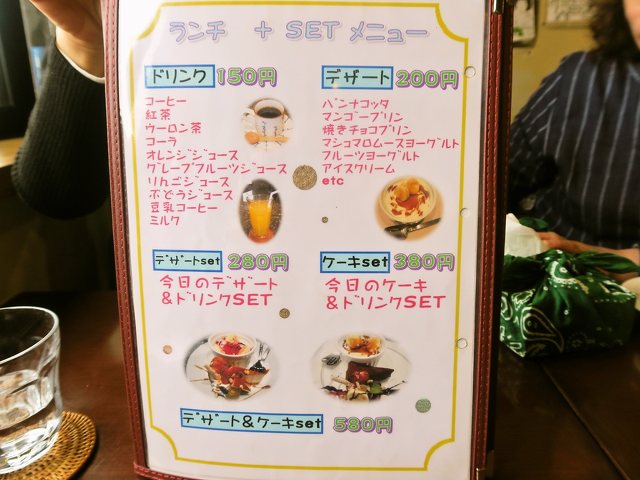 ランチ + SET メニュー
ドリンク 150円
コーヒー
紅茶
ウーロン茶
コーラ
オレンジジュース
グレープフルーツジュース
りんごジュース
ぶどうジュース
豆乳コーヒー
ミルク
デザート 200円
パンナコッタ
マンゴープリン
焼きチョコプリン
マシュマロムースヨーグルト
フルーツヨーグルト
アイスクリーム
etc
デザートset 280円
今日のデザート
&ドリンクSET
ケーキset 380円
今日のケーキ
&ドリンクSET
デザート&ケーキset 580円